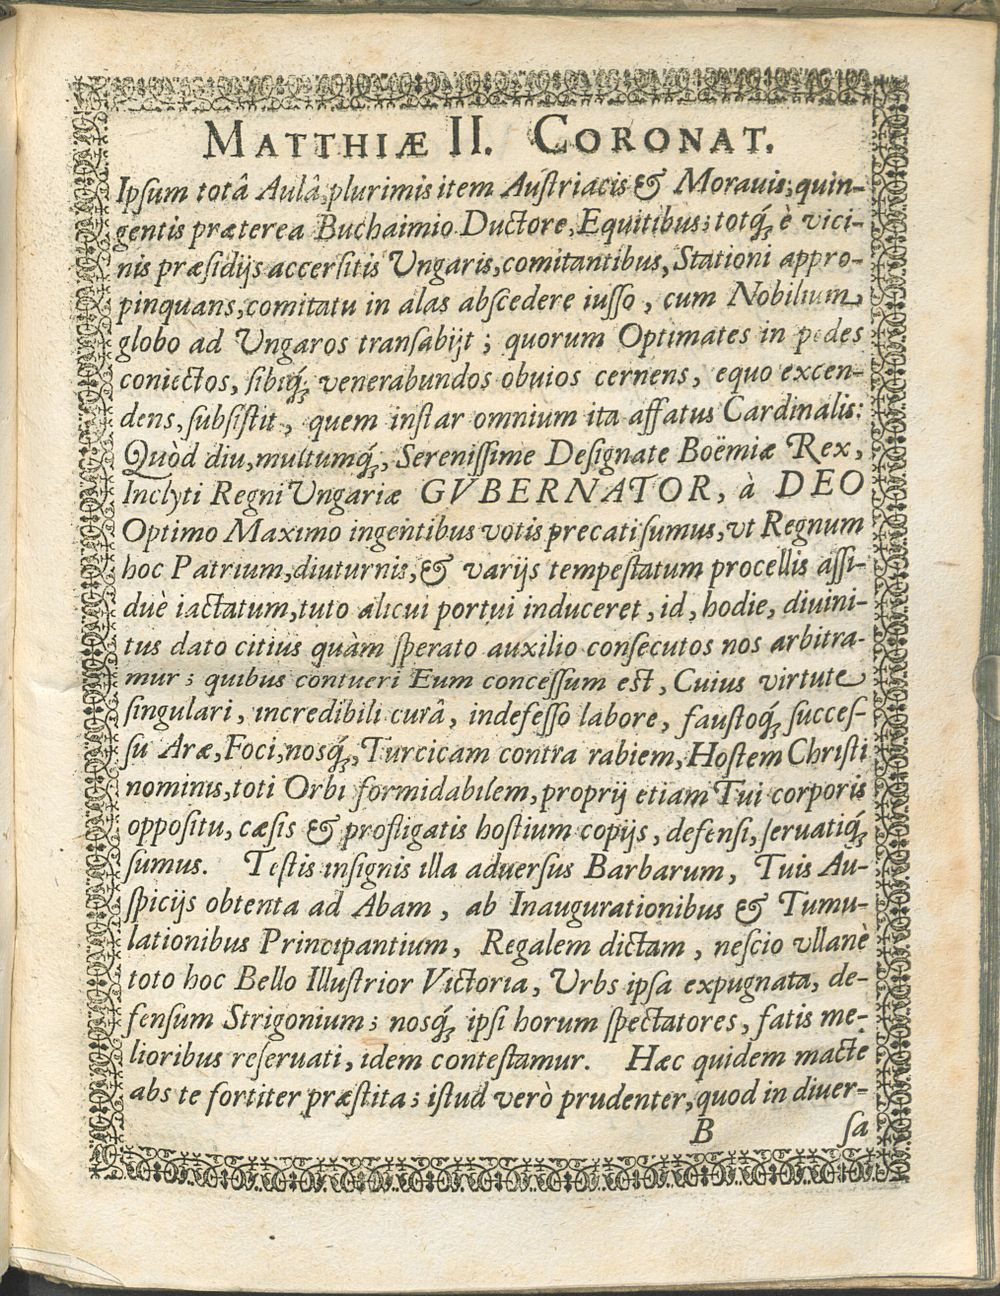 MATTHIÆ II. CORONAT.
Ipsum totâ Aulâ, plurimis item Austriacis & Morauis; quin-
gentis præterea Buchaimio Ductore, Equitibus; totq́; è vici-
nis præsidijs accersitis Ungaris, comitantibus, Stationi appro-
pinquans, comitatu in alas abscedere iusso, cum Nobilium
globo ad Ungaros transabijt; quorum Optimates in pedes
coniectos, sibiq́; venerabundos obuios cernens, equo excen-
dens, subsistit, quem instar omnium ita affatus Cardinalis:
Quòd diu, multumq́;, Serenissime Designate Boëmiæ Rex,
Inclyti Regni Ungariæ GVBERNATOR, à DEO
Optimo Maximo ingentibus votis precati sumus, vt Regnum
hoc Patrium, diuturnis, & varijs tempestatum procellis assi-
duè iactatum, tuto alicui portui induceret, id, hodie, diuini-
tus dato citius quàm sperato auxilio consecutos nos arbitra-
mur; quibus contueri Eum concessum est, Cuius virtute
singulari, incredibili curâ, indefesso labore, faustoq́; succes-
su Aræ, Foci, nosq́;, Turcicam contra rabiem, Hostem Christi
nominis, toti Orbi formidabilem, proprij etiam Tui corporis
oppositu, cæsis & profligatis hostium copijs, defensi, seruatiq́;
sumus. Testis insignis illa aduersus Barbarum, Tuis Au-
spicijs obtenta ad Abam, ab Inaugurationibus & Tumu-
lationibus Principantium, Regalem dictam, nescio vllanè
toto hoc Bello Illustrior Victoria, Urbs ipsa expugnata, de-
fensum Strigonium; nosq́; ipsi horum spectatores, fatis me-
lioribus reseruati, idem contestamur. Hæc quidem macte
abs te fortiter præstita; istud verò prudenter, quod in diuer-
B sa